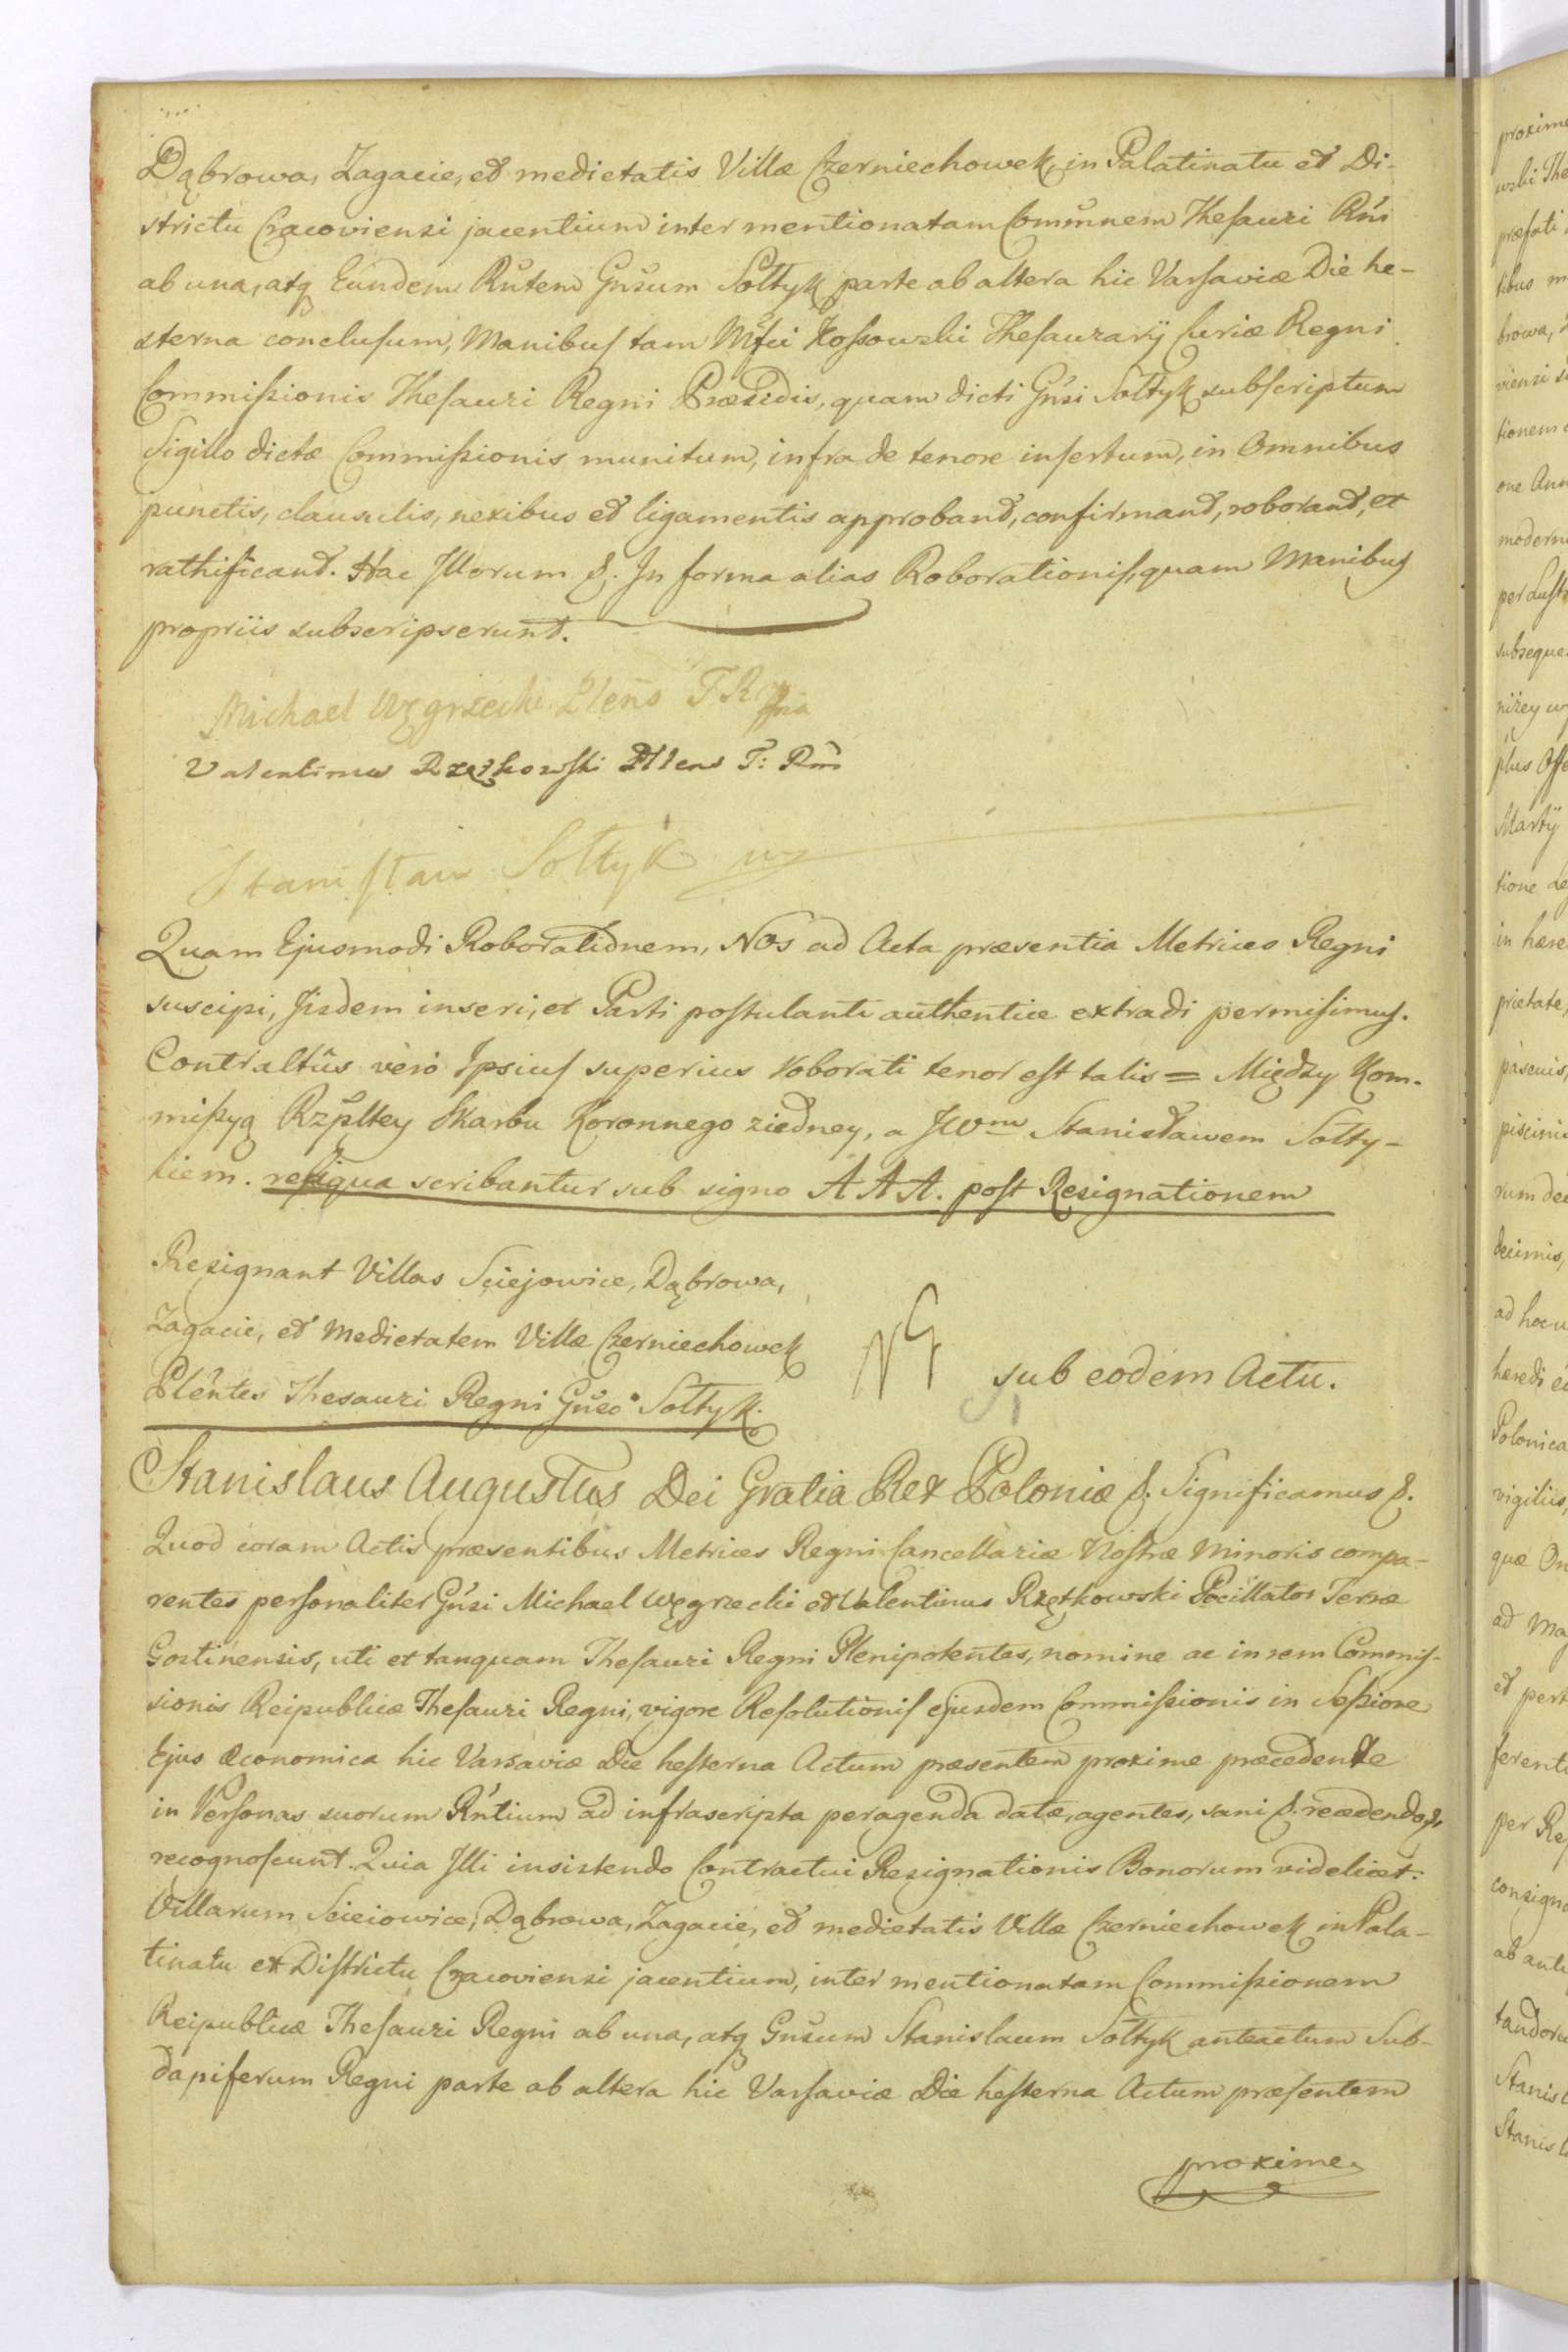 Dąbrowa, Zagacie, et medietatis Villæ Czerniechowek, in Palatinatu et Di-
strictu Cracoviensi jacentium inter mentionatam Commnem Thesauri Rni
ab una, atq Eundem Rntem Gnsum Sołtyk parte ab altera hic Varsaviæ Die he-
sterna conclusum, Manibus tam Mfci Kossowski Thesaurarij Curiæ Regni
Commissionis Thesauri Regni Præsidis, quam dicti Gnsi Sołtyk subscriptum
Sigillo dictæ Commissionis munitum, infra de tenore insertum, in Omnibus
punctis, clausulis, nexibus et ligamentis approband, confirmand, roborand, et
rathificand. Hac Illorum &. In forma alias Roborationis, quam Manibus
propriis subscripserunt.
Michael Węgrzecki Plens T R
Valentinus Rzętkowski Plens T: Rni
Stanisław Sołtyk
Quam Ejusmodi Roborationem, Nos ad Acta præsentia Metrices Regni
suscipi, Iisdem inseri, et Parti postulanti authentice extradi permisimus.
Contractus vero Ipsius superius roborati tenor est talis = Między Kom-
missyą Rzpltey Skarbu Koronnego ziedney, a JWm Stanisławem Sołty-
kiem. reliqua scribantur sub signo AAA. post Resignationem
Resignant Villas Sciejowice, Dąbrowa,
Zagacie, et Medietatem Villæ Czerniechowek
Plentes Thesauri Regni Gnso Sołtyk.
sub eodem Actu.
Stanislaus Augustus Dei Gratia Rex Poloniæ &. Significamus &.
Quod coram Actis præsentibus Metrices Regni Cancellariæ Nostræ Minoris compa-
rentes personaliter Gnsi Michael Węgrzecki et Valentinus Rzętkowski Pocillator Terræ
Gostinensis, uti et tanquam Thesauri Regni Plenipotentes, nomine ac in rem Commis-
sionis Reipublicæ Thesauri Regni, vigore Resolutionis ejusdem Commissionis in Sessione
Ejus Œconomica hic Varsaviæ Die hesterna Actum præsentem proxime præcedente
in Personas suorum Rntium ad infrascripta peragenda datæ, agentes, sani &. recedendo &,
recognoscunt. Quia Illi insistendo Contractui Resignationis Bonorum videlicet:
Villarum Sciejowice, Dąbrowa, Zagacie, et medietatis Villæ Czerniechowek in Pala-
tinatu et Districtu Cracoviensi jacentium, inter mentionatam Commissionem
Reipublicæ Thesauri Regni ab una, atq Gnsum Stanislaum Sołtyk anteactum Sub-
dapiferum Regni parte ab altera hic Varsaviæ Die hesterna Actum præsentem
proxime